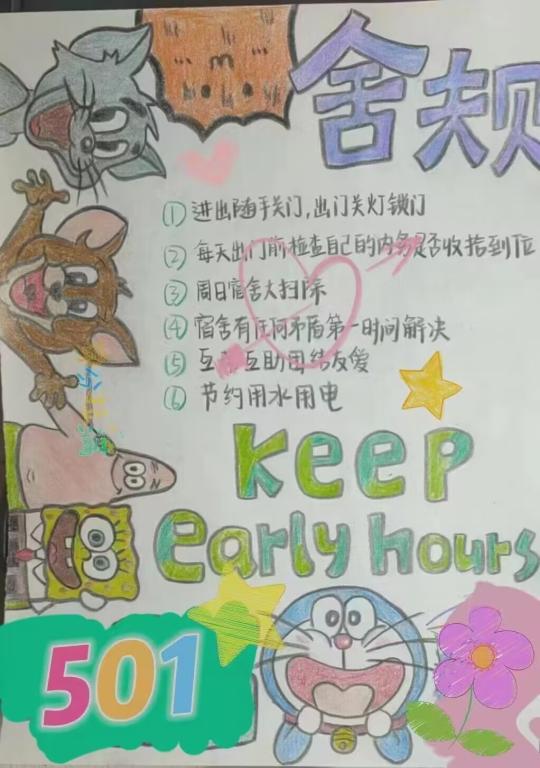 舍规
①进出随手关门,出门关灯锁门
②每天出门前检查自己的内务是否收拾到位
③周日宿舍大扫除
④宿舍有任何矛盾第一时间解决
⑤互互助团结友爱
⑥节约用水用电
keep
early hours
501